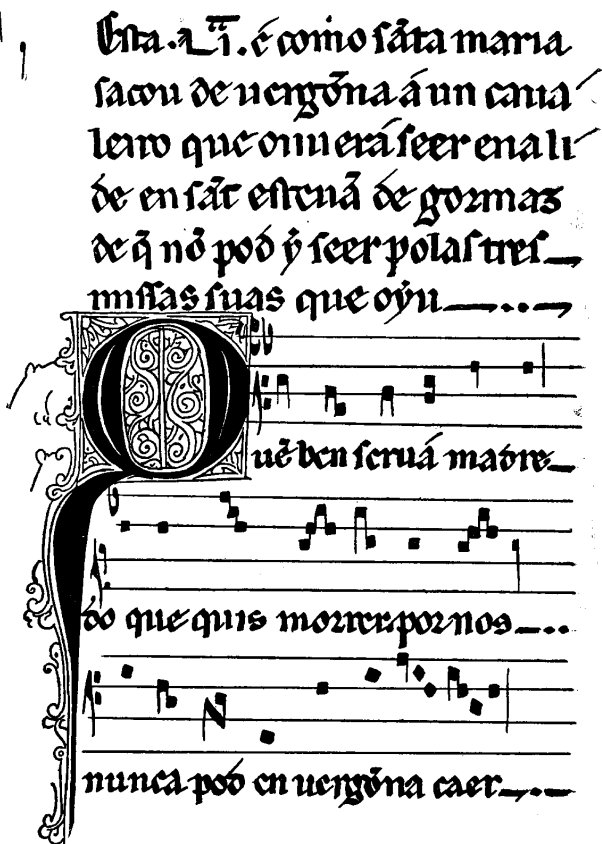 Esta .a Lĩĩ. é como sãta maria
sacou de uergõna á un caua
leiro que ouuerá seer ena li
de en sãt esteuã de gormaz
de q̃ nõ pod ẏ seer polas tres
missas suas que oẏu
Quẽ ben seruá madre
do que quis morrer por nos
nunca pod en uergõna caer